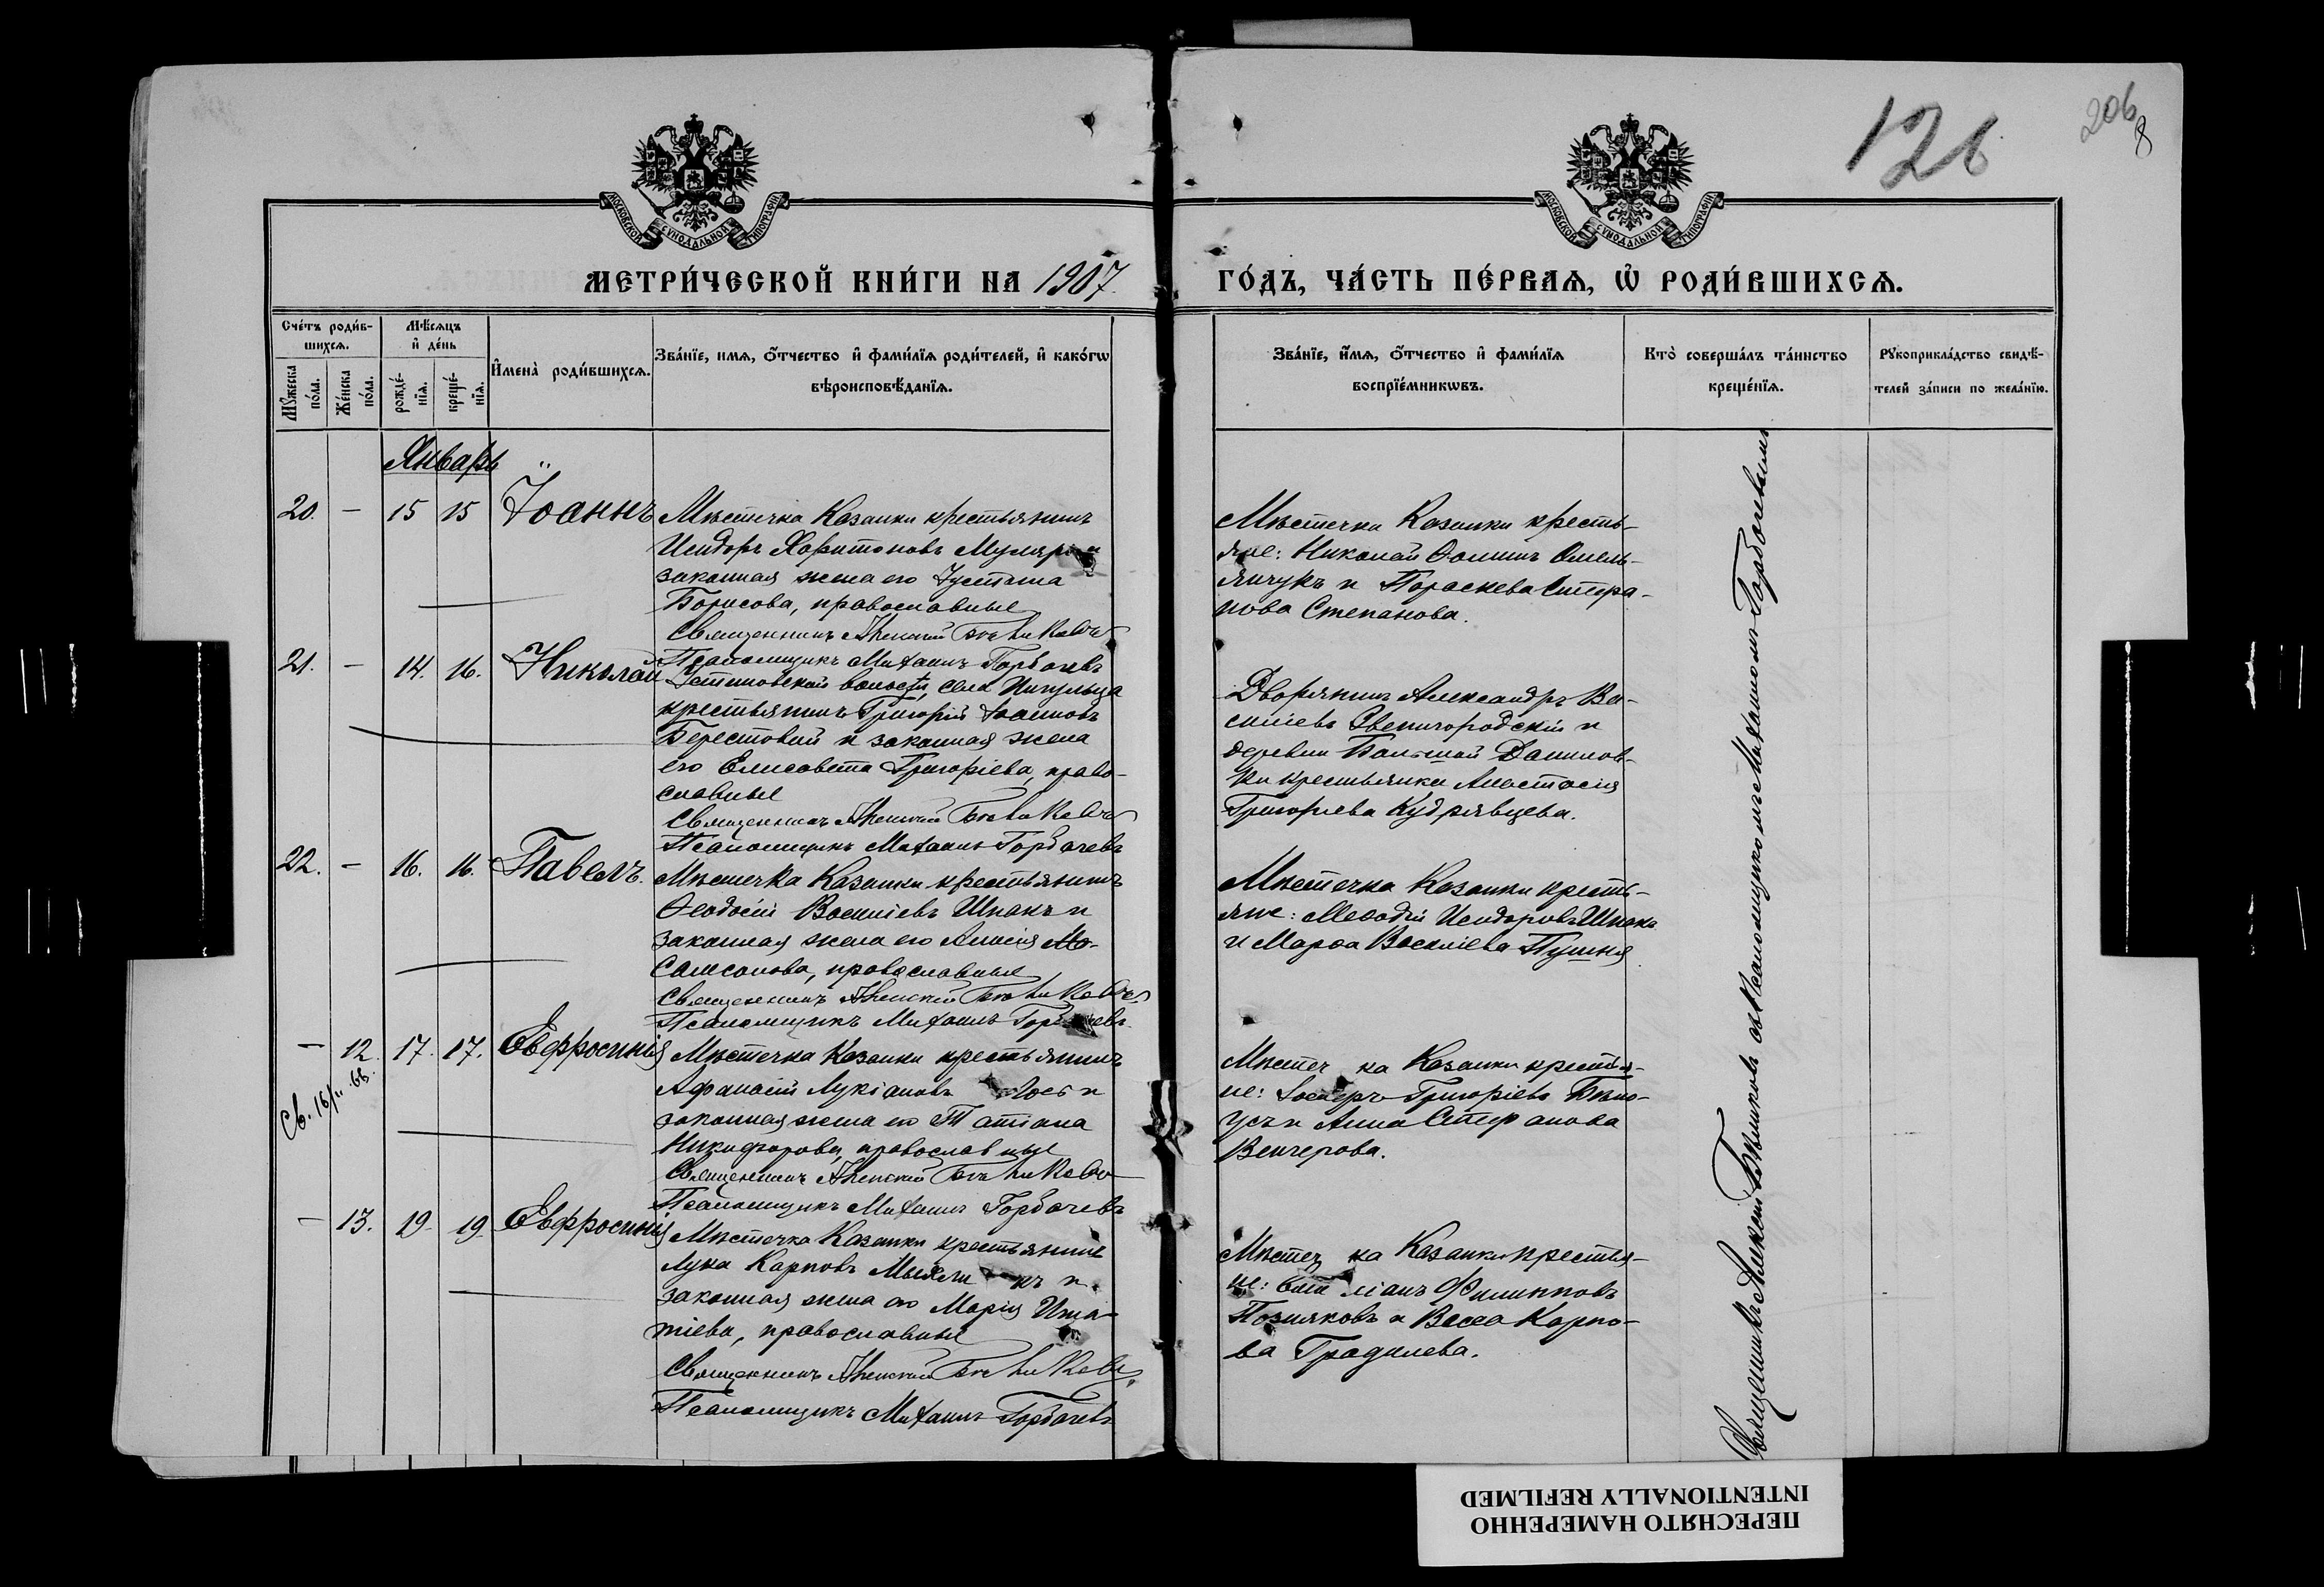 126
206
8
МОСКОВСКОЙ СѴНОДАЛЬНОЙ ТИПОГРАФІИ
МОСКОВСКОЙ СѴНОДАЛЬНОЙ ТИПОГРАФІИ
МЕТРИ́ЧЕСКОЙ КНИ́ГИ НА 1907
ГО́ДЪ, ЧА́СТЬ ПЕ́РВАѦ, Ѡ҆ РОДИ́ВШИХСѦ.
Сче́тъ роди́в-
шихсѧ.
Мѣ́сѧцъ
и҆ де́нь
Мꙋ́жеска по́ла.
Же́нска по́ла.
рожде́-
нїѧ.
креще́-
нїѧ.
И҆мена̀ роди́вшихсѧ.
Зва́нїе, имѧ, ѻ҆́тчество и҆ фами́лїѧ роди́телей, и҆ како́гѡ
вѣроисповѣ́данїѧ.
Зва́нїе, и҆́мѧ, ѻ҆́тчество и҆ фами́лїѧ
воспрїе́мникѡвъ.
Кто̀ соверша́лъ та́инство
креще́нїѧ.
Рꙋкоприкла́дство свидѣ́-
телей за́писи по жела́нїю.
Январь
20. — 15 15 Іоаннъ
Мѣстечка Казанки крестьянинъ
Исидоръ Харитоновъ Муляръ и
законная жена его Іустина
Борисова, православные
Священникъ Алексій
Псаломщикъ Михаилъ Горбачевъ
Мѣстечка Казанки кресть-
яне: Николай Ѳоминъ Омель-
янчукъ и Параскева
Степанова.
21. — 14. 16. Николай
волости, села
крестьянинъ Григорій Іоанновъ
Берестовый и законная жена
его Елисавета Григоріева, право-
славные
Священникъ Алексій
Псаломщикъ Михаилъ Горбачевъ
Дворянинъ Александръ Ва-
силіевъ Звенигородскій и
деревни Большой Данилов-
ки крестьянка Анастасія
Григорьева Кудрявцева.
22. — 16. 16. Павелъ.
Мѣстечка Казанки крестьянинъ
Ѳеодосій Василіевъ Шпакъ и
законная жена его Анисія
Самсонова, православные
Священникъ Алексій
Псаломщикъ Михаилъ Горбачевъ
Мѣстечка Казанки кресть-
яне: Меѳодій Исидоровъ Шпакъ
и Марѳа Василіева Пушня
— 12. 17. 17. Евфросинія
Мѣстечка Казанки крестьянинъ
Афанасій Лукіановъ
законная жена его Татіана
Никифорова, православные
Священникъ Алексій
Псаломщикъ Михаилъ Горбачевъ
Мѣстечка Казанки крестья-
не: Іосифъ Григоріевъ Бѣло-
усъ и Анна Стефанова
Венгерова.
— 13. 19. 19. Евфросинія
Мѣстечка Казанки крестьянинъ
Лука Карповъ
законная жена его Марія Игна-
тіева, православные
Священникъ Алексій
Псаломщикъ Михаилъ Горбачевъ
Мѣстечка Казанки крестья-
не: Филипповъ
Позняковъ и Васса Карпо-
ва Градилева.
Священникъ Алексій съ псаломщикомъ Михаиломъ Горбачевымъ
ПЕРЕСНЯТО НАМЕРЕННО
INTENTIONALLY REFILMED